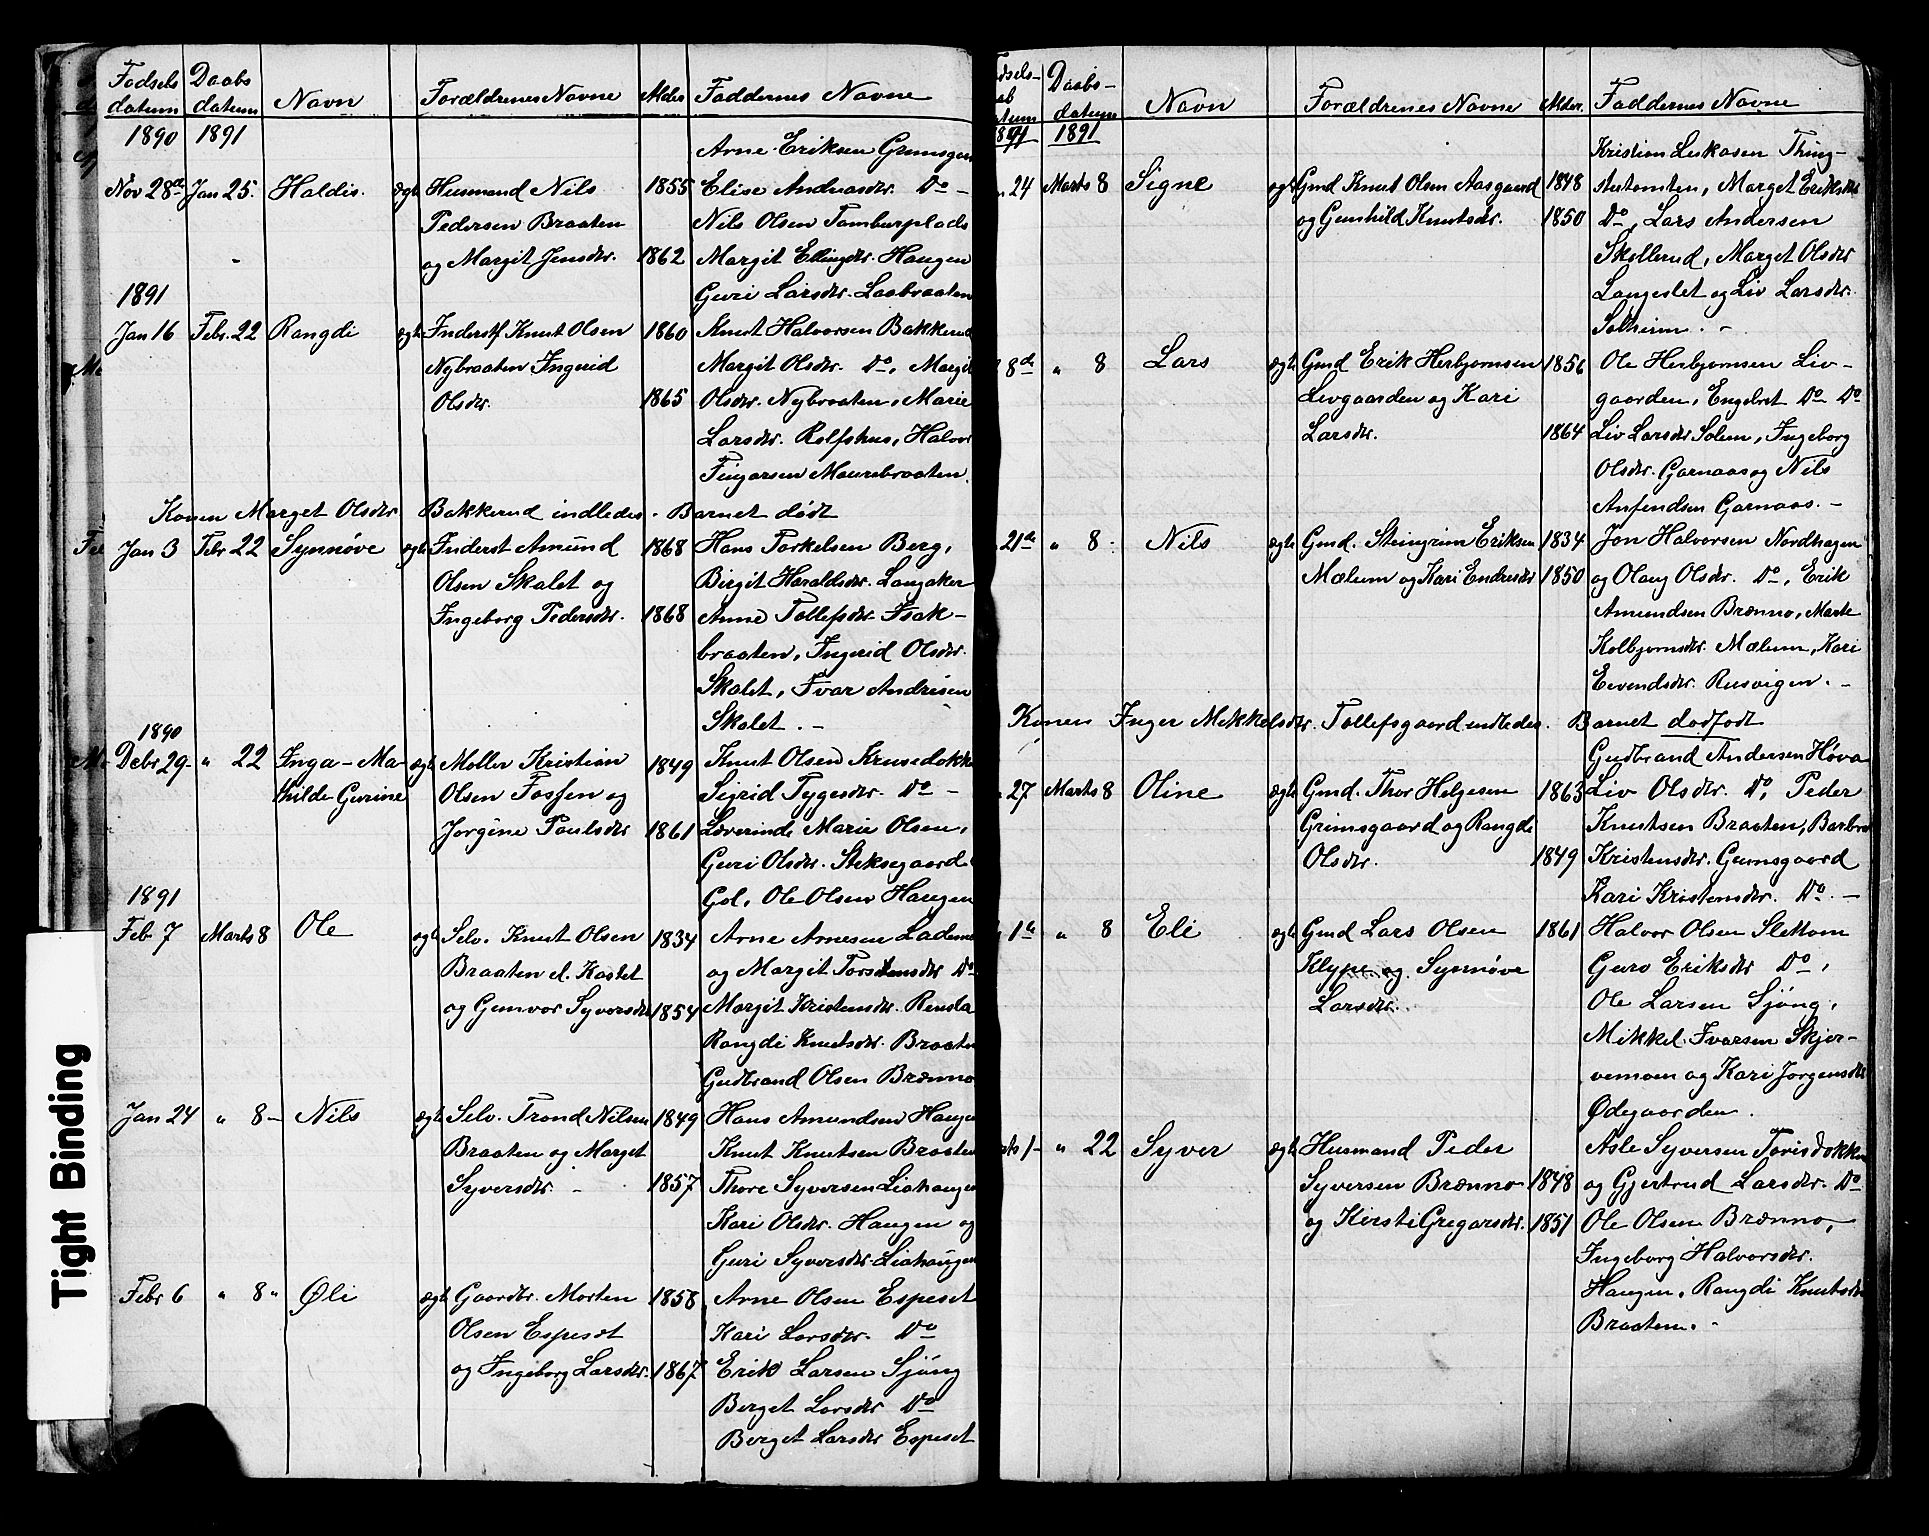 Fodsels datum Daabs datum Navn Forældrenes Navne Alder Faddernes Navne
1890 1891
Arne Eriksen Grimsgar
Nov 28de Jan 25. Haldis. ægte Husmand Nils 1855 Elise Andreasdtr Do –
Pedersen Braaten Nils Olsen Tamburplads
og Margit Jensdtr. 1862 Margit Ellingdtr. Haugen
1891 Guri Larsdtr. Laabraaten
Jan 16 Febr. 22 Rangdi ægte Inderst Knut Olsen 1860 Knut Halvorsen Bakkerud
Nybraaten Ingerid Margit Olsdtr. Do, Margit
Olsdtr. 1865 Olsdtr. Nybraaten, Marie
Larsdtr. Rolfshus, Halvor
Fingarsen Maurebraaten.
Konen Marget Olsdtr Bakkerud indledes. Barnet dødt
Jan 3 Febr 22 Synnøve ægte Inderst Amund 1868 Hans Torkelsen Berg,
Olsen Skalet og Birgit Haraldsdtr. Langaker
Ingeborg Pedersdtr. 1868 Anne Tollefsdtr Isak-
braaten, Ingerid Olsdtr.
Skalet, Ivar Andrisen
Skalet. –
1890
Debr 29 " 22 Inga-Ma- ægte Møller Kristian 1849 Knut Olsen Krusedokke
thilde Gurine Olsen Fossen og Sigrid Tygesdtr. Do –
Jorgine Paulsdtr 1861 Loverinde Marie Olsen,
Guri Olsdtr. Steksegaard
1891 Gol, Ole Olsen Haugen
Feb 7 Marts 8 Ole ægte Selv. Knut Olsen 1834 Arne Arnesen
Braaten d. Kastet og Margit Torstensdtr Do
og Gunvor Syversdtr 1854 Margit Kristensdtr. Rensla
Rangdi Knutsdtr. Braaten
Gudbrand Olsen Brænno
Jan 24 " 8 – Nils ægte Selv. Trond Nilsen 1849 Hans Amundsen Haugen
Braaten og Marget Knut Knutsen Braaten
Syversdtr. – 1857 Thore Syversen Liahaugen
Kari Olsdtr. Haugen og
Guri Syversdtr. Liahaugen
Febr 6 " 8 " Øli ægte Gaardbr. Morten 1858 Arne Olsen Espeset
Olsen Espeset Kari Larsdtr. Do
og Ingeborg Larsdtr. 1867 Erik Larsen Sjöng
Berget Larsdtr Do
Berget Larsdtr Espeset
Daabs- datum Navn Forældrenes Navne Alder. Faddernes Navne
1891
Kristian Leskasen Thing-
24 Marts 8 Signe ægte Gmd Knut Olsen Aasgaard 1848 stutomten, Marget Eriksdtr
og Gunhild Knutsdtr. 1850 Do, Lars Andersen
Skollerud, Marget Olsdtr
Langeslet og Liv Larsdtr.
Solheim. –
8de " 8 Lars ægte Gmd Erik Herbjornsen 1856 Ole Herbjornsen Liv-
Livgaarden og Kari gaarden, Engebret Do Do
Larsdtr. 1864 Liv Larsdtr Solem, Ingeborg
Olsdtr. Garnaas og Nils
Anfendsen Garnaas. –
21de " 8 Nils ægte Gmd. Steingrim Eriksen 1834 Jon Halvorsen Nordhagen
Mælum og Kari Endresdtr 1850 og Olaug Olsdtr. Do, Erik
Amundsen Brænno, Marte
Kolbjornsdtr. Mælum, Kari
Eivendsdtr. Rusvigen. –
Konen Inger Mikkelsdtr. Tollefsgaard indledes. Barnet dodfodt
Gudbrand Andersen Høva
27 Marts 8 Oline ægte Gmd. Thor Helgesen 1863 Liv Olsdtr. Do, Peder
Grimsgaard og Rangdi Knutsen Braaten, Barbro
Olsdtr. 1849 Kristensdtr. Grimsgaard
Kari Kristensdtr. Do. –
1ste " 8 Eli ægte Gmd Lars Olsen 1861 Halvor Olsen Slettom
Klype og Synnøve Guro Eriksdtr Do,
Larsdtr. Ole Larsen Sjöng,
Mikkel Ivarsen Skjer-
vemoen og Kari Jorgensdtr
Ødegaarden.
" 22 Syver ægte Husmand Peder Asle Syversen Torisdokken
Syversen Brænno 1848 og Gjertrud Larsdtr. Do
og Kirsti Gregarsdtr. 1851 Ole Olsen Brænno,
Ingeborg Halvorsdtr.
Haugen, Rangdi Knutsdtr
Braaten. –
Tight Binding